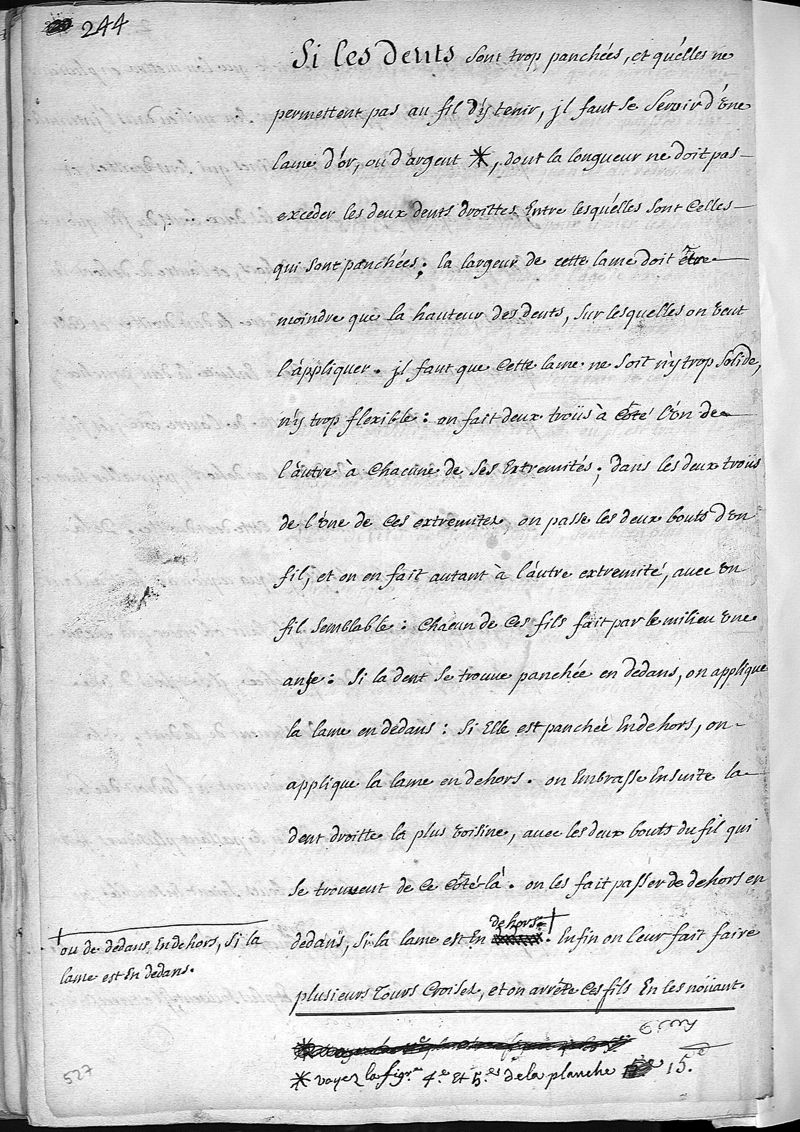 244
Si les dents sont trop panchées, et qu'elles ne
permettent pas au fil d'y tenir, jl faut se servir d'vne
lame d'or, ou d'argent *, dont la longueur ne doit pas
exceder les deux dents droittes Entre lesquelles sont Celles
qui sont panchées; la largeur de cette lame doit être
moindre que la hauteur des dents, sur lesquelles on veut
l'áppliquer. jl faut que Cette lame ne soit n'y trop solide,
n'y trop flexible: on fait deux troüs à Côté l'vn de
l'áutre à Chacune de ses Extremités; dans les deux troüs
de l'vne de Ces extremités on passe les deux bouts d'vn
fil, et on en fait autant à l'áutre extremité, avec vn
fil semblable: Chacun de Ces fils fait par le milieu vne
anse: si la dent se trouve panchée en dedans, on applique
la lame en dedans: si Elle est panchée En dehors, on
applique la lame en dehors. on Embrasse Ensuite la
dent droitte la plus voisine, avec les deux bouts du fil qui
se trouvent de Ce Côté là. on les fait passer de dehors en
dehors †
dedans, si la lame est En . Enfin on leur fait faire
† ou de dedans En dehors, si la
lame est En dedans.
plusieurs Tours Croisez, et on arréte Ces fils En les noüant.
* voyez la figr. 4.e Et 5.es de la planche 15.e
527